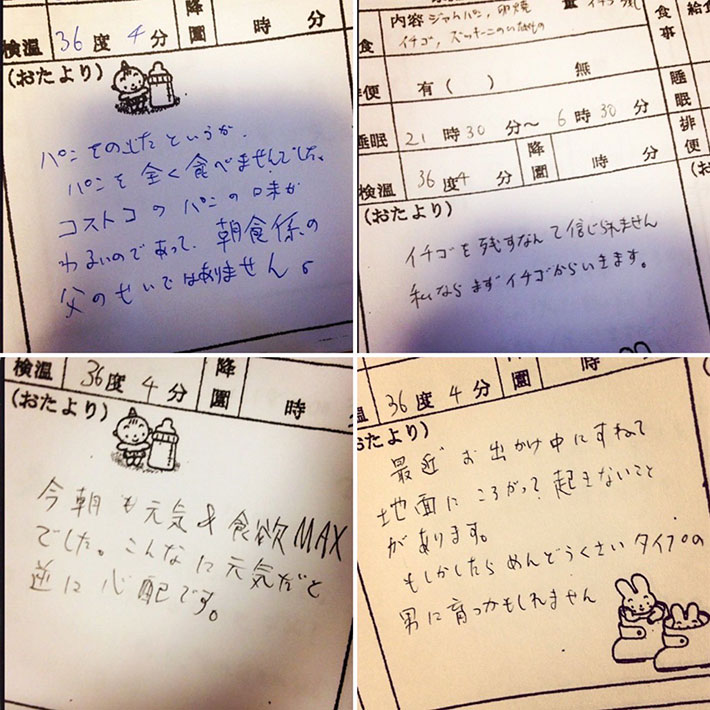 検温 36度 4分 降園 時 分
(おたより)
パンをの上たというか、
パンを全く食べませんでした。
コストコのパンの味が
わるいのであって、朝食係の
父のせいではありません。
食 内容 ジャムパン, 卵焼 量 イチゴ
イチゴ, ズッキーニのいためもの
食事 給食
便 有( ) 無
睡眠
睡眠 21時30分~6時30分
排便
検温 36度4分 降園 時 分
(おたより)
イチゴを残すなんて信じられません
私ならまずイチゴからいきます。
検温 36度 4分 降園 時
(おたより)
今朝も元気&食欲MAX
でした。こんなに元気だと
逆に心配です。
温 36度 4分 降園 時
おたより)
最近お出かけ中にすねて
地面にころがって起きないこと
があります。
もしかしたらめんどうくさいタイプの
男に育つかもしれません